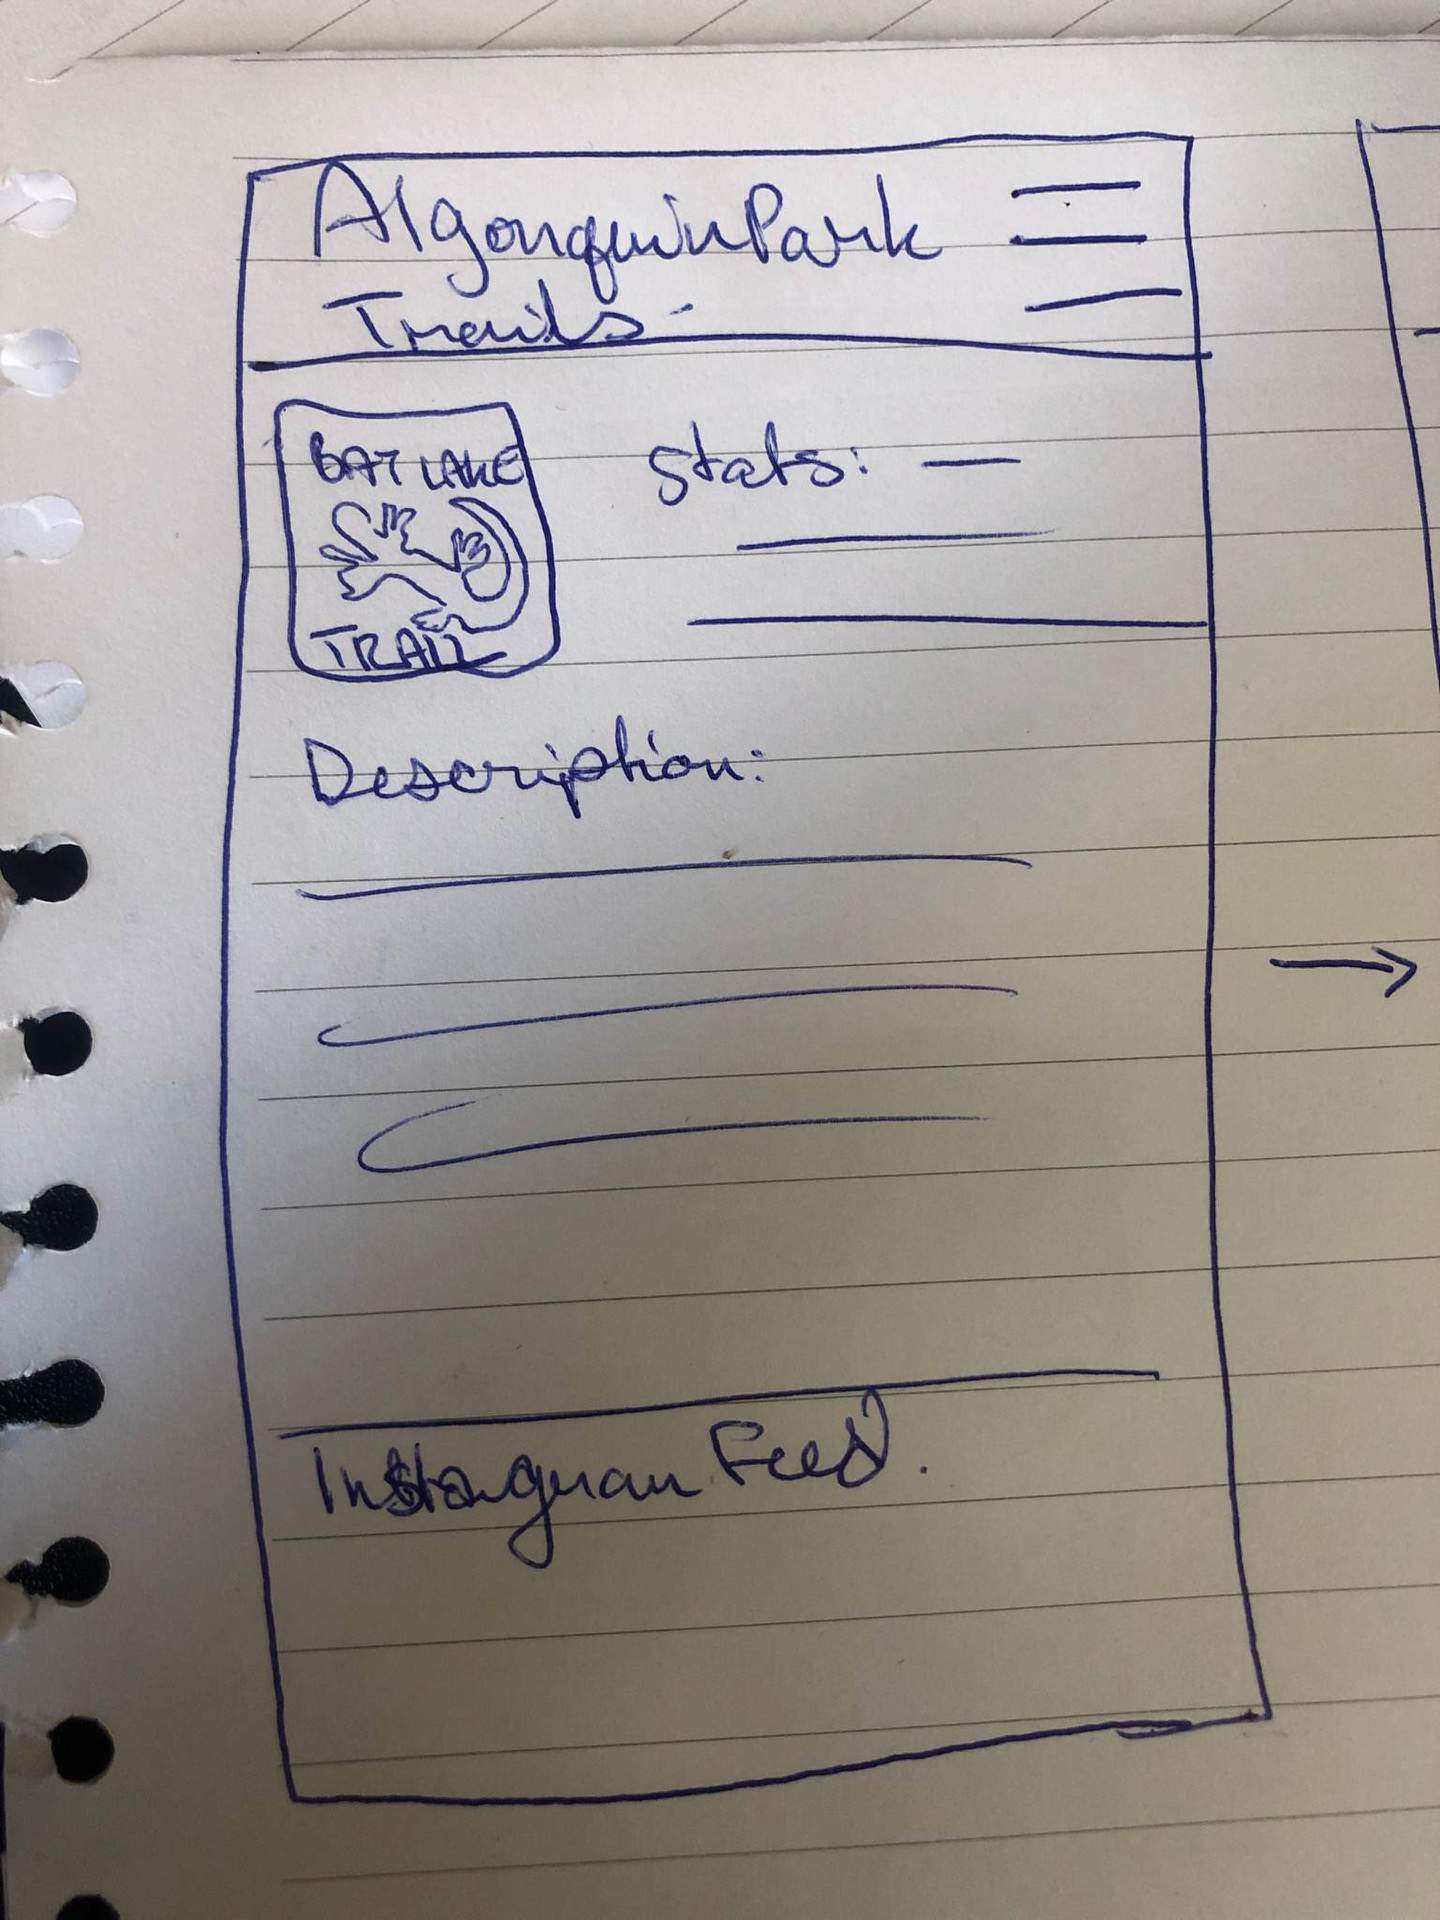 Algonquin Park
Trails
BAT LAKE
TRAIL
Stats:
Description:
Instagram Feed.